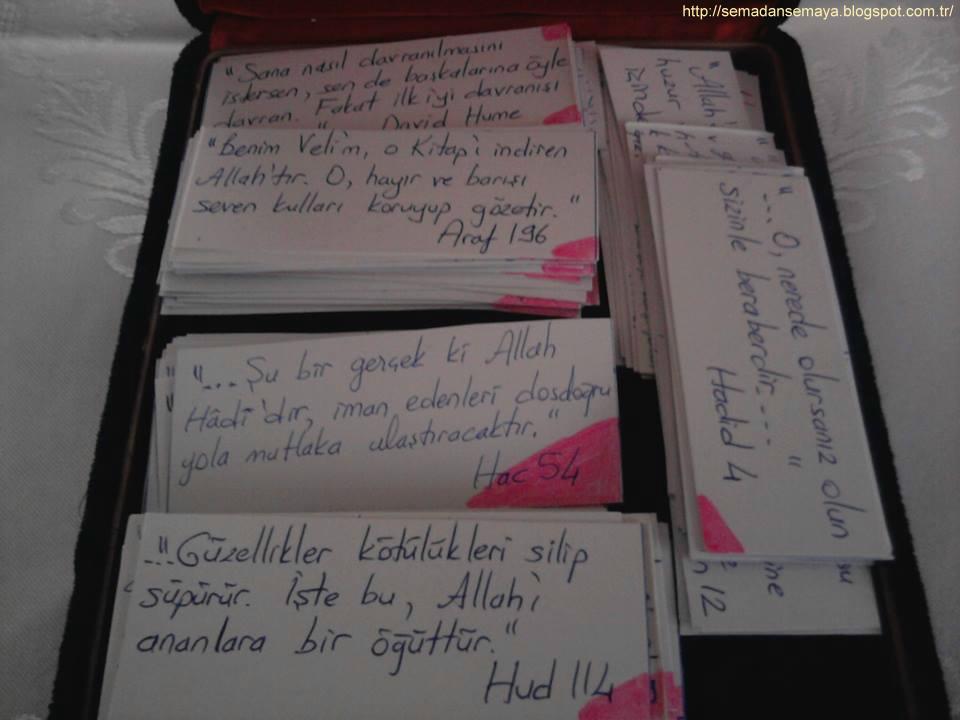 http://semadansemaya.blogspot.com.tr/
"Sana nasıl davranılmasını
istersen, sen de başkalarına öyle
davran. Fakat ilk iyi davranışı
David Hume
"Benim Velî'm, o Kitap'ı indiren
Allah'tır. O, hayır ve barışı
seven kulları koruyup gözetir."
Araf 196
"... Şu bir gerçek ki Allah
Hâdî'dır, iman edenleri dosdoğru
yola mutlaka ulaştıracaktır."
Hac 54
"...Güzellikler kötülükleri silip
süpürür. İşte bu, Allah'ı
ananlara bir öğüttür."
Hud 114
"Allah'ı
huzur
"... O, nerede olursanız olun
sizinle beraberdir...."
Hadid 4
12